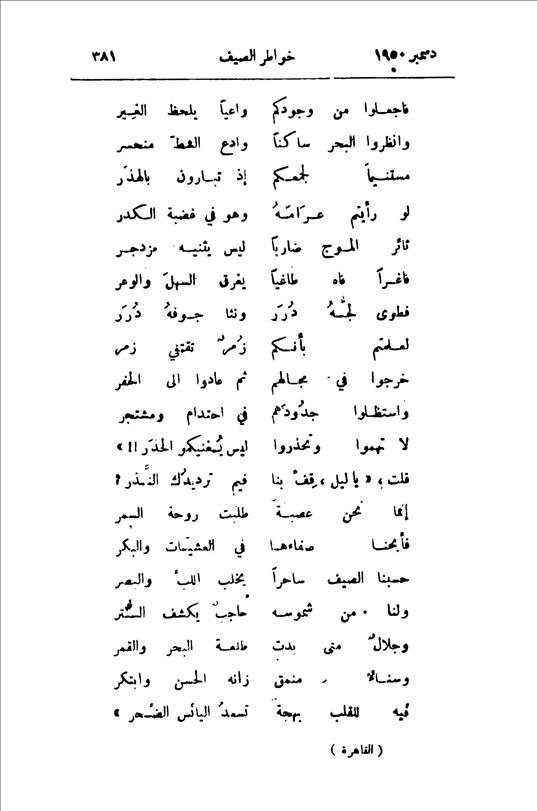 دسمبر ١٩٥٠ خواطر الصيف ٣٨١
فاجعلوا من وجودكم واعياً يلحظ الغِيَر
وانظروا البحر ساكناً وادع الشطّ منحسر
مستنيماً لجمعكم إذ تبارون بالهذَر
لو رأيتم عَرَامَتَهُ وهو في غضبة الكدر
ثائر الموج ضارباً ليس يثنيه مزدجر
فاغراً فاه طاغياً يغرق السهلَ والوعر
فطوى لجُّهُ دُرَر ونثا جوفهُ دُرَر
لعلمتم بأنكم زُمرٌ تقتفي زمر
خرجوا في مجالهم ثم عادوا الى الحفر
واستظلوا جدُودَهم في احتدام ومشتجر
لا تهموا وتحذروا ليس يُغنيكمو الحذَر !! »
قلت ، « يا ليل ، قِفْ بنا فيم ترديدُك النُّذر ؟
إنما نحن عصبة طلبت روحة السمر
فأبحنا صفاءها في العشيّات والبكر
حسبنا الصيف ساحراً يخلب اللبّ والبصر
ولنا من شموسه حاجبٌ يكشف السُّتر
وجلالٌ متى بدت طلعة البحر والقمر
وسناءٌ منمق زانه الحسن وابتكر
فيه للقلب بهجةٌ تسعدُ اليائس الضَّجر »
( القاهرة )